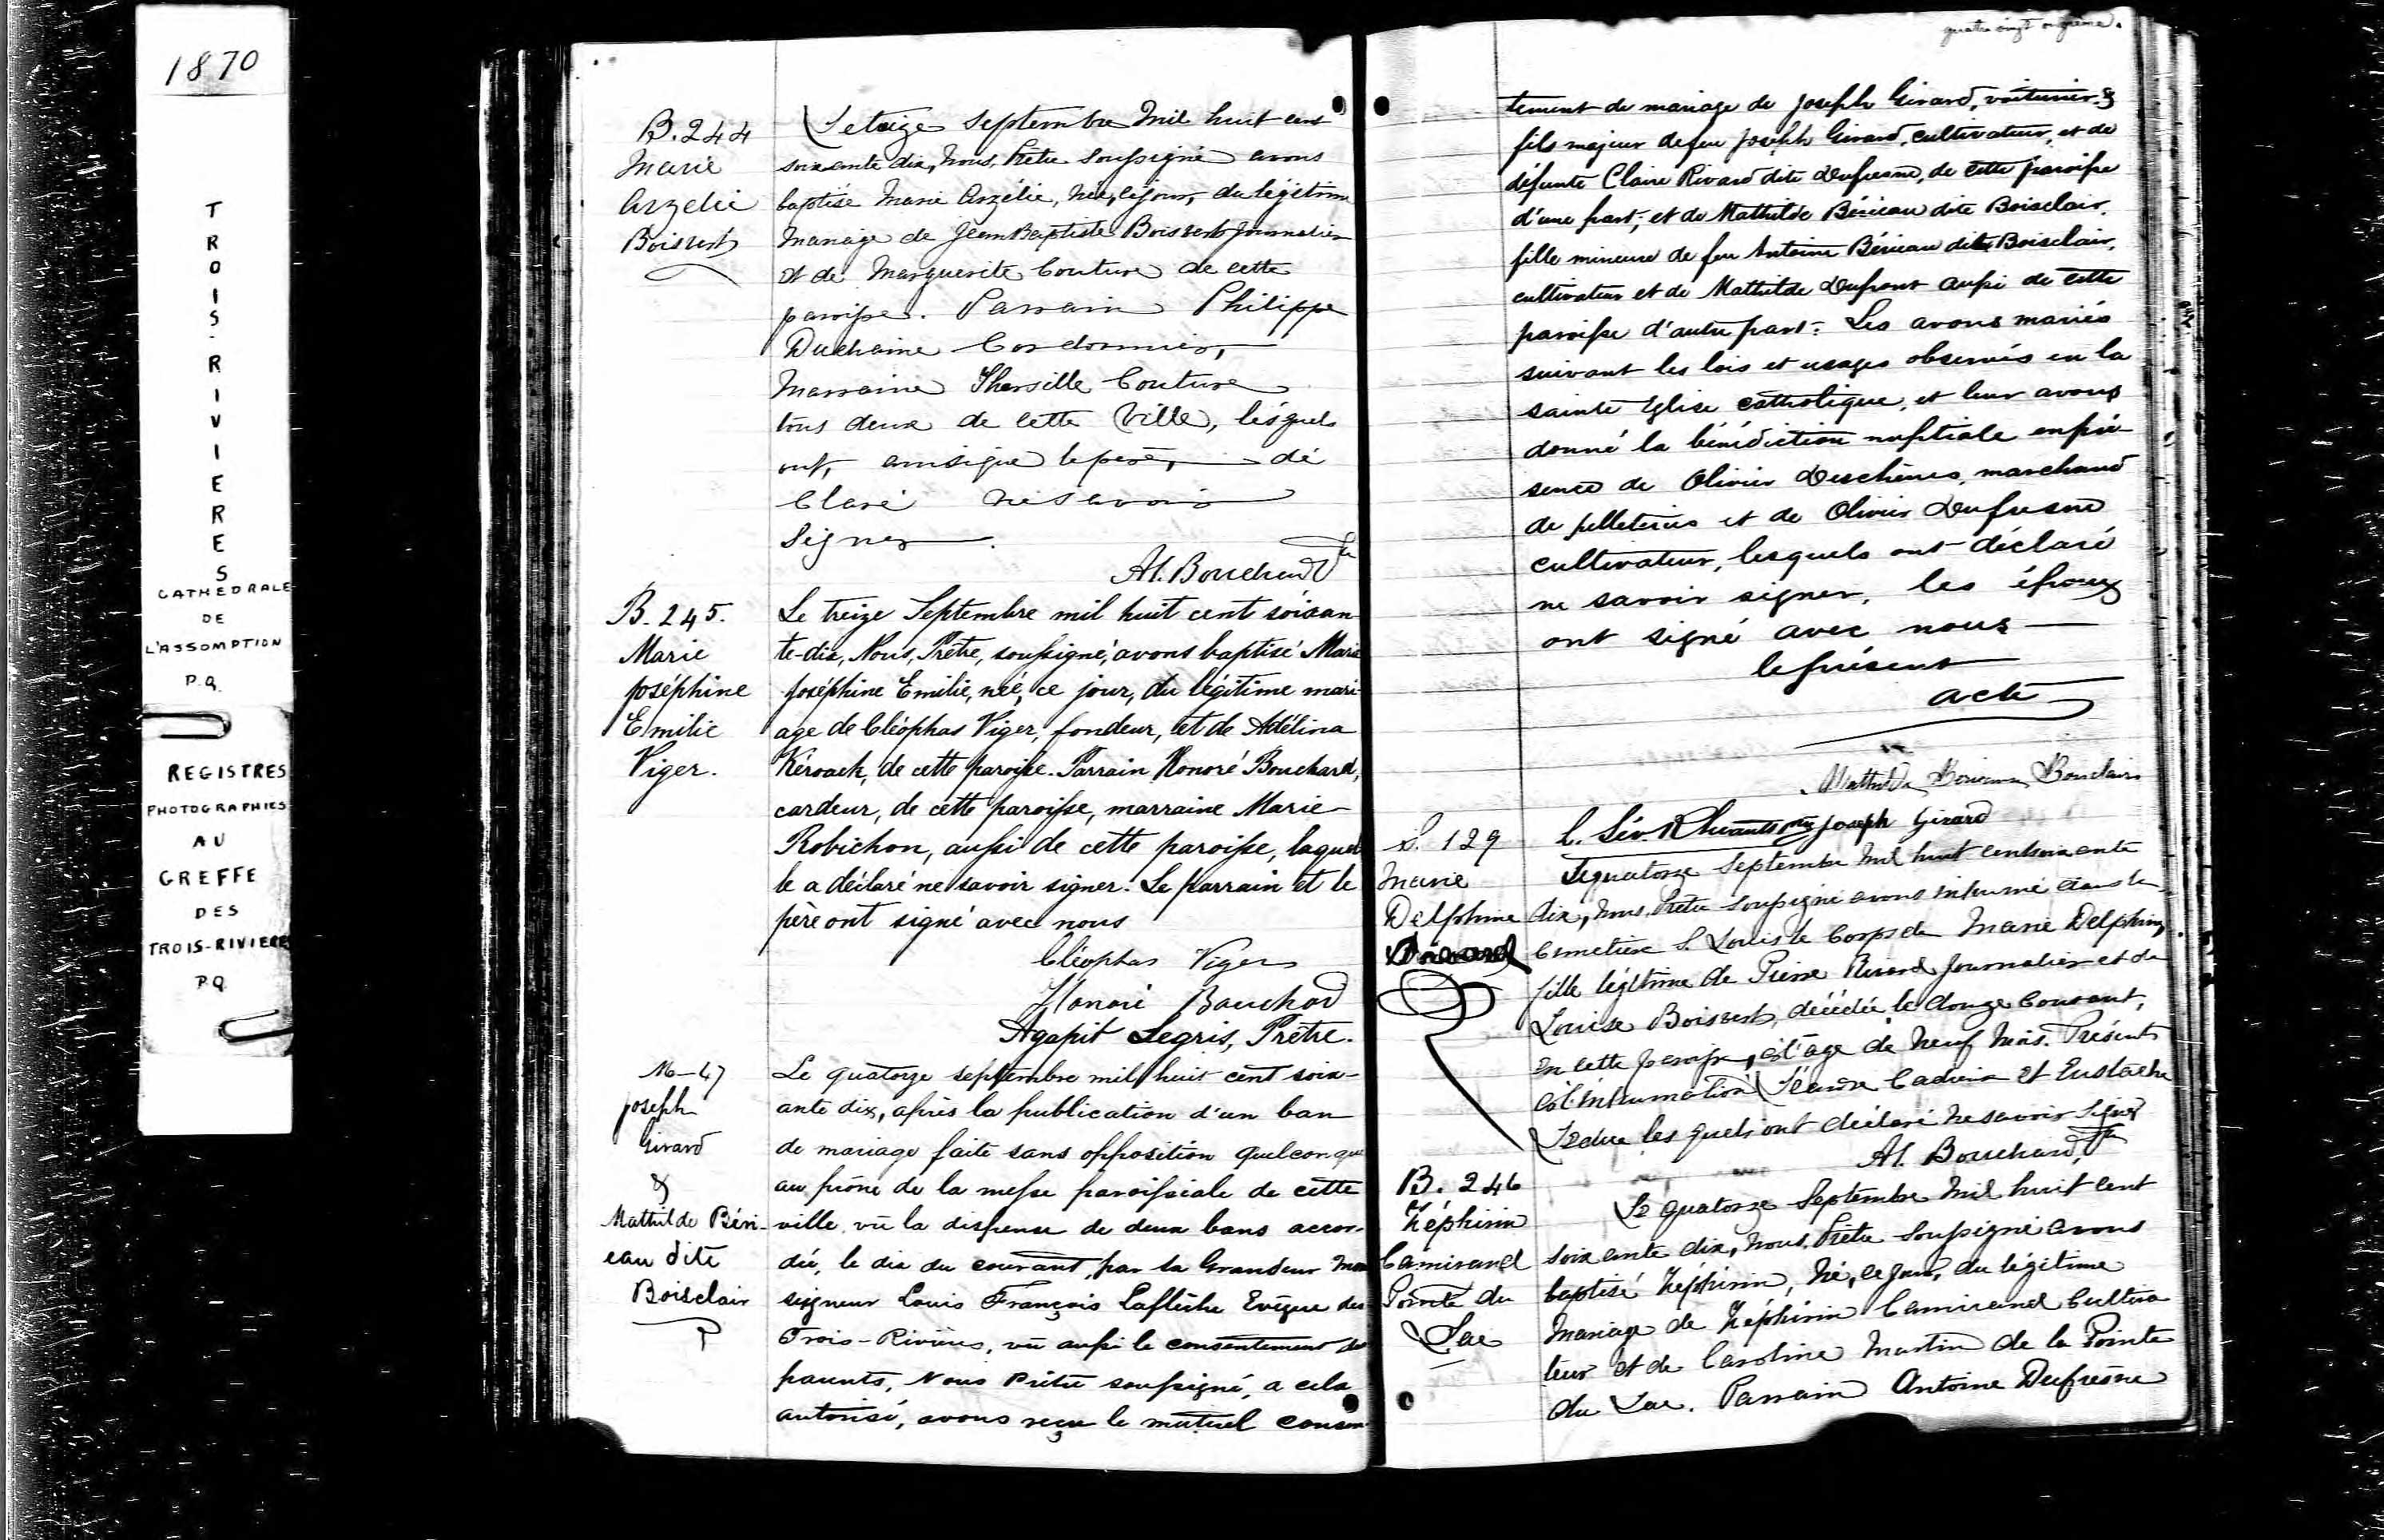 1870
TROIS-RIVIERES
CATHEDRALE
DE
L'ASSOMPTION
P.Q.
REGISTRES
PHOTOGRAPHIES
AU
GREFFE
DES
TROIS-RIVIERES
P.Q.
B. 244
Marie
Arzelie
Boisvert
Le treize Septembre mil huit cent
soixante dix, Nous, Prêtre soussigné avons
baptisé Marie Arzélie, née, ce jour, du légitime
mariage de Jean Baptiste Boisvert journalier
et de Marguerite Couture de cette
paroisse. Parrain Philippe
Duchaine Cordonnier,
Marraine Tharsille Couture
tous deux de cette ville, lesquels
ont, ainsique le père, dé
claré ne savoir
signer.
Al. Bouchard Ptre
B. 245.
Marie
Joséphine
Emilie
Viger.
Le treize Septembre mil huit cent soixan
te-dix, Nous, Prêtre, soussigné, avons baptisé Marie
Joséphine Emilie, née, ce jour, du légitime mari
age de Cléophas Viger, fondeur, et de Adélina
Kéroack, de cette paroisse. Parrain Honoré Bouchard,
cardeur, de cette paroisse, marraine Marie
Robichon, aussi de cette paroisse, laquel
le a déclaré ne savoir signer. Le parrain et le
père ont signé avec nous
Cléophas Viger
Honoré Bouchard
Agapit Legris, Prêtre.
M-47
Joseph
Girard
&
Mathilde Béri-
eau dite
Boisclair
Le quatorze septembre mil huit cent soix-
ante dix, après la publication d'un ban
de mariage faite sans opposition quelconque
au prône de la messe paroissiale de cette
ville, vû la dispense de deux bans accor-
dée, le dix du courant, par sa Grandeur Mon
seigneur Louis François Laflèche Evêque des
Trois-Rivières, vû aussi le consentement des
parents, Nous Prêtre soussigné, a cela
autorisé, avons reçu le mutuel consen
quatre vingt onzième.
tement de mariage de Joseph Girard, voiturier &
fils majeur de feu Joseph Girard, cultivateur, et de
défunte Claire Rivard dite Dufresne, de cette paroisse
d'une part; et de Mathilde Bérieau dite Boisclair,
fille mineure de feu Antoine Bérieau dit Boisclair,
cultivateur et de Mathilde Dufront aussi de cette
paroisse d'autre part: Les avons mariés
suivant les lois et usages observés en la
sainte Eglise catholique, et leur avons
donné la bénédiction nuptiale en pré-
sence de Olivier Deschênes, marchand
de pelleteries et de Olivier Dufresne
cultivateur, lesquels ont déclaré
ne savoir signer, les époux
ont signé avec nous
le présent
acte
Mathilde Berieau Boisclair
Joseph Girard
S. 129
Marie
Delphine
Le quatorze Septembre mil huit cent soixante
dix, Nous, Prêtre soussigné avons inhumé dans le
Cimetière S. Louis le Corps de Marie Delphine
fille légitime de Pierre Rivard journalier et de
Louise Boisvert, décédée le douze Courant,
en cette paroisse, à l'âge de neuf mois. Présents
à l'inhumation Léandre Cadieux et Eustache
lesquels ont déclaré ne savoir signer
Al. Bouchard, Ptre
B. 246
Zéphirin
Camirand
Pointe du
Lac
Le quatorze Septembre mil huit cent
soixante dix, Nous, Prêtre soussigné avons
baptisé Zéphirin, né, ce jour, du légitime
mariage de Zéphirin Camirand Cultiva
teur et de Caroline Martin de la Pointe
du Lac. Parrain Antoine Dufresne